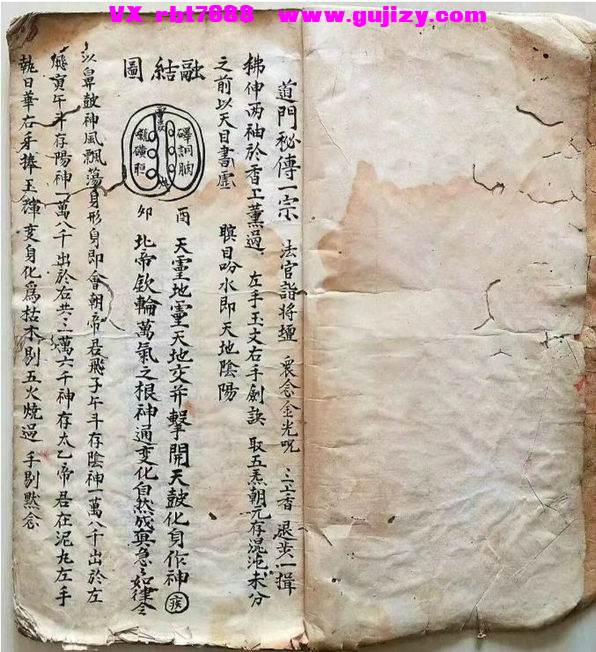 VX rbt7888 www.gujizy.com
道門秘傳一宗 法官詣將壇 裹念金光咒 三上香 退步一揖
拂伸两袖於香上薰過 左手玉文右手劍訣 取五炁朝元存混沌未分
之前以天目書處 瞚目吩水即天地陰陽
融結圖
酉 天靈地靈天地交并擊開天鼓化身作神 疾
卯 北帝欽輪萬氣之根神通變化自然成真急急如律令
以鼻鼓神風飄蕩身形身即會朝帝君飛子午斗存陰神一萬八千出於左
飛寅午斗存陽神一萬八千出於右共三萬六千神存太乙帝君在泥丸左手
執日華右手捧玉 変身化爲枯木剔五火燒過 手剔黙念